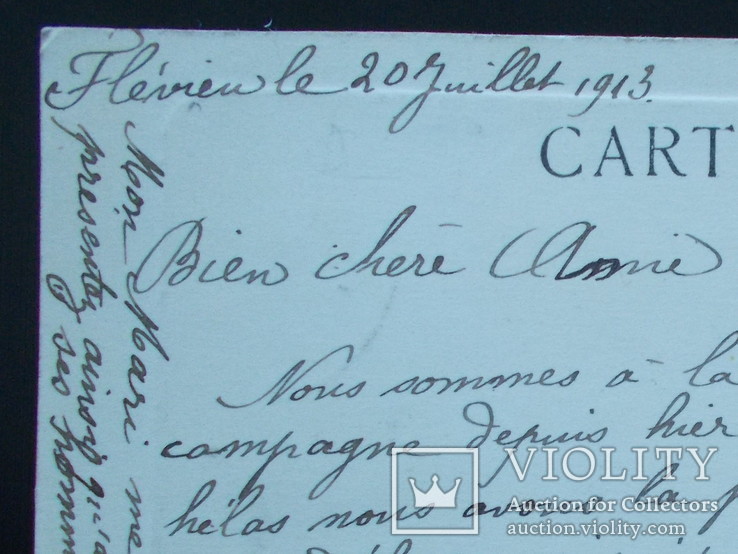 Flévieu le 20 Juillet 1913.
CART
Bien chère Amie
Nous sommes à la
campagne depuis hier
hélas nous avons la p
Mon Mari me
presenter ainsi qu'a
ses homm
VIOLITY
Auction for Collectors
auction.violity.com